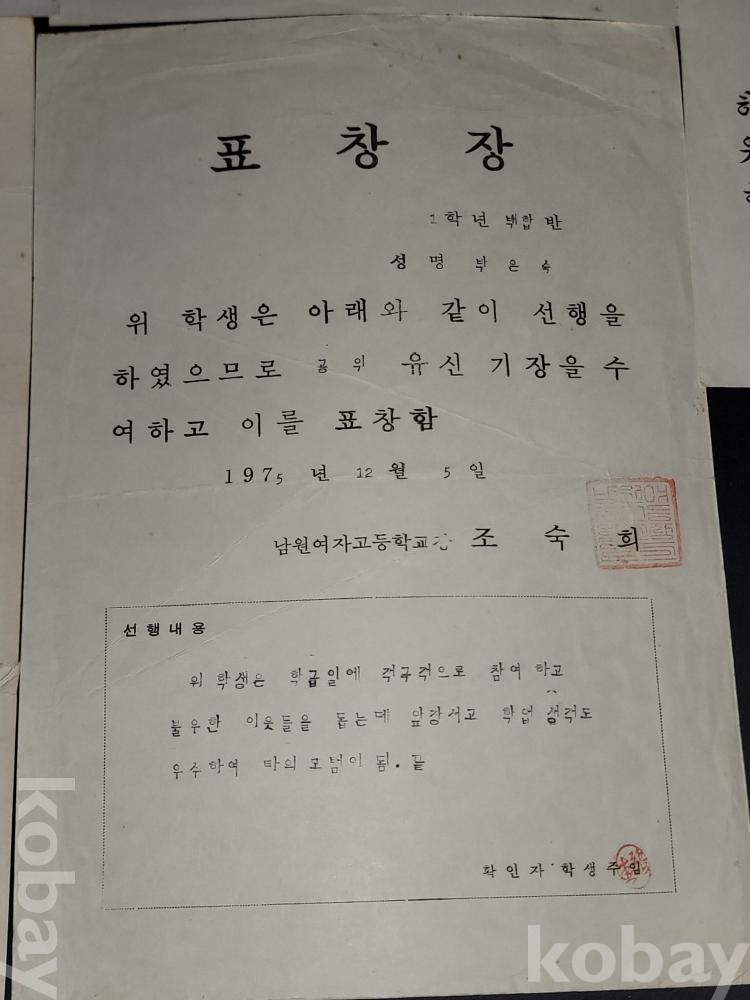 표 창 장
1학년 백합 반
성 명 박 은 숙
위 학생은 아래와 같이 선행을
하였으므로 공 위 유신 기장을 수
여하고 이를 표창함
1975 년 12 월 5 일
남원여자고등학교장 조 숙 희
선행내용
위 학생은 학급일에 적극적으로 참여 하고
불우한 이웃들을 돕는데 앞장서고 학업 성적도
우수하여 타의 모범이 됨. 끝
확인자 학생주임
kobay
kobay